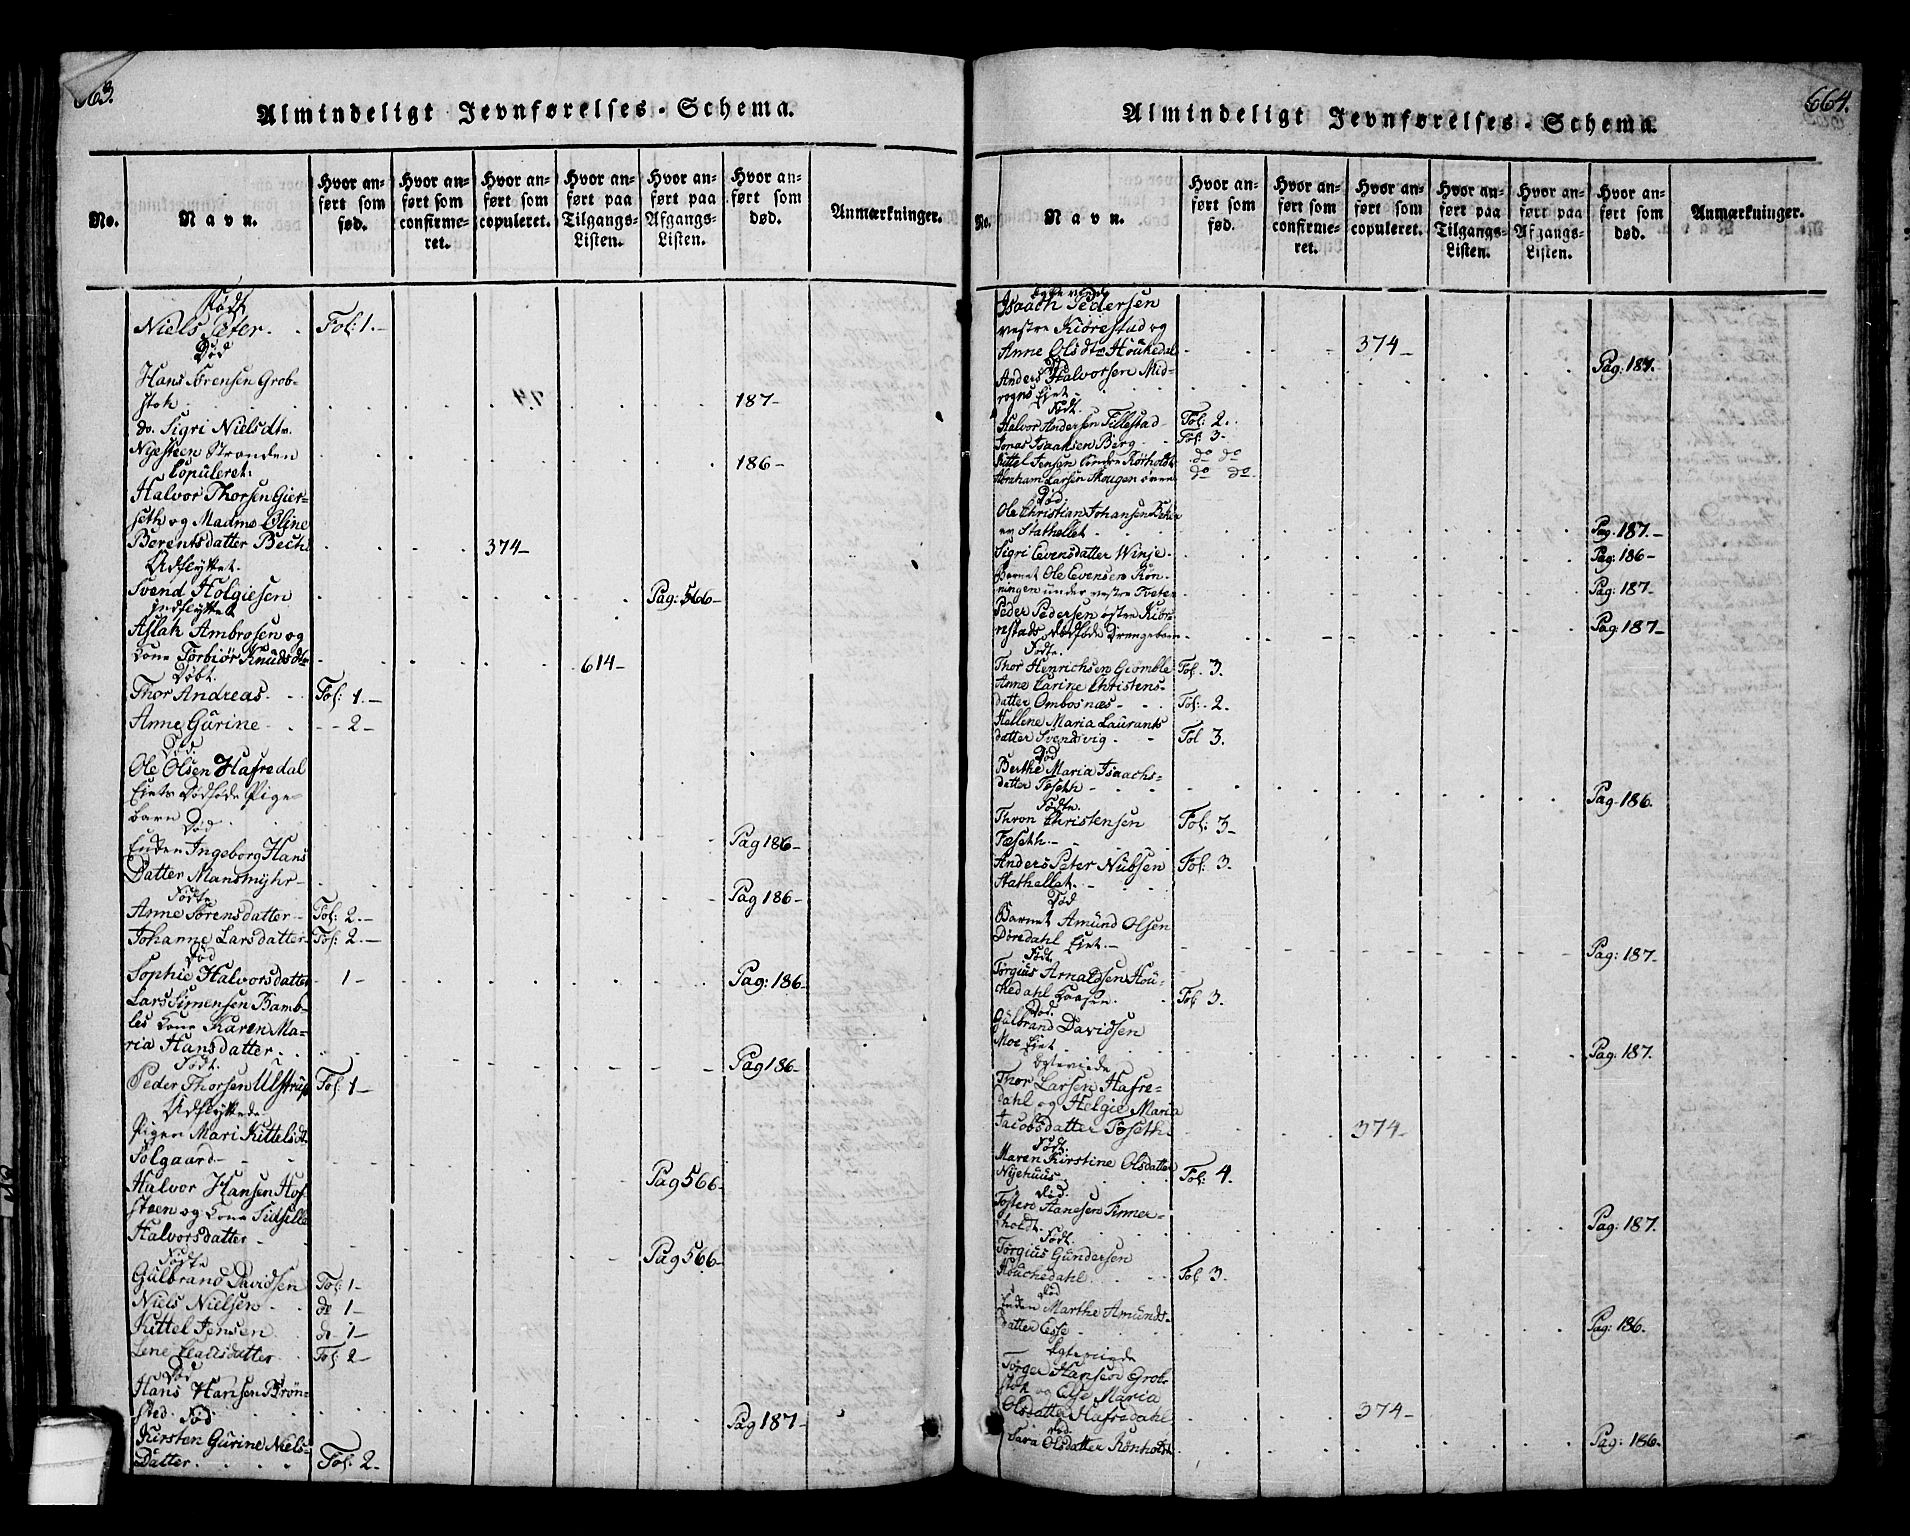 663.
Almindeligt Jevnførelses-Schema.
No.
Navn.
Hvor anført som fød.
Hvor anført som confirmeret.
Hvor anført som copuleret.
Hvor anført paa Tilgangs-Listen.
Hvor anført paa Afgangs-Listen.
Hvor anført som død.
Anmærkninger.
Født
Niels Peter. . Fol: 1.-
Død
Hans Sørensen Grob-
stok 187-
do. Sigri Nielsdtr.
Nyesteen Stranden 186-
Copuleret.
Halvor Thorsen Gier-
seth og Madme Oline
Berentsdatter Bech 374-
Udflyttet.
Svend Holgiesen Pag: 566-
Indflyttet
Aslak Ambrosen og
Kone Torbiør Knudsdtr 614-
Døbt.
Thor Andreas. Fol: 1.-
Anne Gurine - - 2-
Død.
Ole Olsen Hafredal
Eiets Dødføde Pige-
barn Pag 186-
Død
Enken Ingeborg Hans
Datter Mansmyhr- Pag 186-
Fødte
Anne Sørensdatter- Fol: 2.-
Johanne Larsdatter- Fol: 2.-
Død
Sophie Halvorsdatter - 1- Pag: 186-
Lars Simensen Bamb-
les Kone Karen Ma-
ria Hansdatter. Pag 186-
Født.
Peder Thorsen Ulstrup Fol 1-
Udflyttede
Pigen Mari Kittelsdt
Solgaard- Pag 566-
Halvor Hansen Hof-
steen og Kone Sidselle
Halvorsdatter Pag 566-
Fødte
Gulbrand Davidsen Fol: 1-
Niels Nielsen do 1-
Kittel Jensen do 1-
Lene datter Fol: 2-
Død
Hans Hansen Brøn-
sted Pag 187-
Fød
Kirsten Gurine Niels-
Datter. Fol: 2-
664.
Almindeligt Jevnførelses-Schema.
No.
Navn.
Hvor anført som fød.
Hvor anført som confirmeret.
Hvor anført som copuleret.
Hvor anført paa Tilgangs-Listen.
Hvor anført paa Afgangs-Listen.
Hvor anført som død.
Anmærkninger.
Isaach Pedersen
vestre Kiørestad og
Anne Olsdtr Houkedal 374-
Død
Anders Halvorsen Mid-
Eiet Pag: 187.
Født.
Halvor Andersen Fillestad Fol: 2.
Jonas Isaaksen Berg Fol: 3.
Kittel Jensen Rørholt do do
Abraham Larsen Skougen øvre do do
Død.
Ole Christian Johansen
Stathellet Pag: 187.-
Sigri Evensdatter Winje Pag: 186-
Barnet Ole Evensen Røn-
ningen under vestre Tveten Pag: 187-
Peder Pedersen østre Kiør-
restads dødføde Drengebarn Pag: 187-
Fødte.
Thor Henrichsen Grømble Fol. 3.
Anne Carine Christens-
datter Ombosnæs- Fol: 2.
Hellene Maria Laurants
datter Svendsvig Fol 3.
Død
Berthe Maria Isaachs-
datter Foseth Pag: 186.
Fødte.
Thron Christensen
Fæseth.- Fol: 3-
Anders Peter Nubsen
Stathellet. Fol: 3.
Død
Barnet Amund Olsen
Døredahl Eiet. Pag: 187-
Født
Torgius Arnoldsen Hou-
chedahl Fol 3.
Død.
Gulbrand Davidsen
Moe Eiet Pag: 187.
Egteviede
Thor Larsen Hafre-
dahl og Helgie Maria
Jacobsdatter Foseth. 374-
Født.
Maren Kirstine Olsdatter
Nyehuus. Fol: 4.
Død.
Tosten Hansen Finmer-
holdt. Pag: 187.
Født.
Torgius Gundersen
Houchedahl. Fol 3.
Død
Enken Marthe Amunds-
datter Esse Pag: 186.
Egteviede
Torger Hansen Grob-
stok og Else Maria
Olsdatter Hafredahl 374-
Død.
Sara Olsdatter Rønholt Pag: 186.